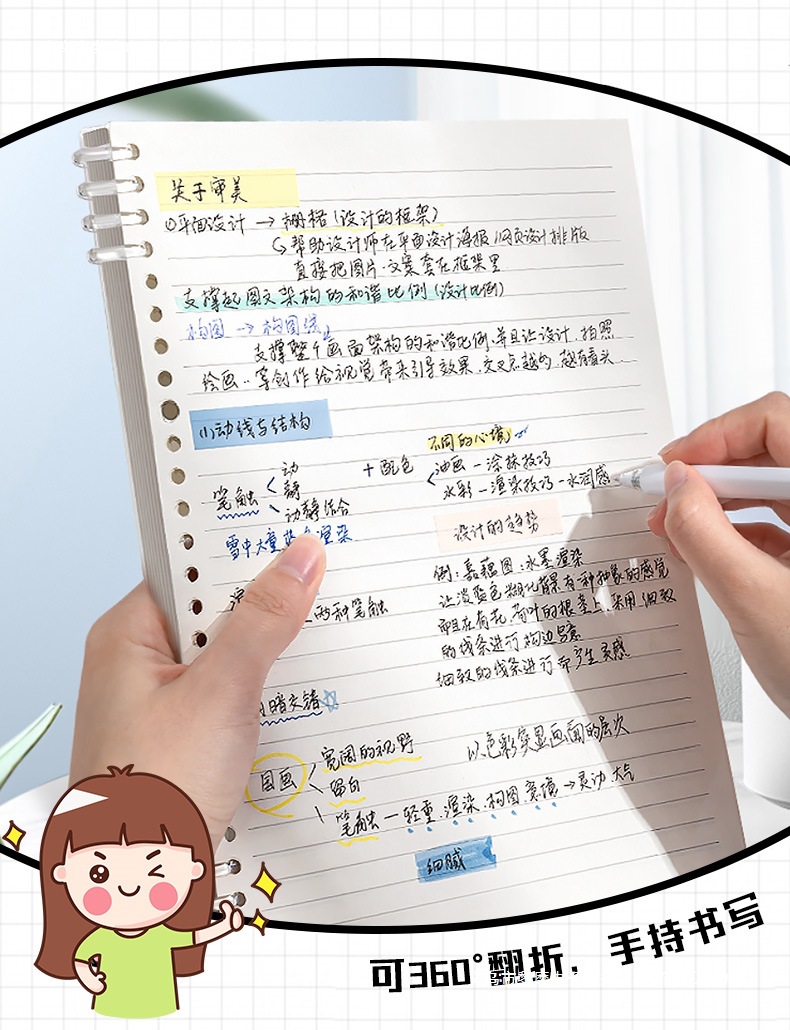 关于审美
①平面设计 → 栅格(设计的框架)
↳帮助设计师在平面设计海报/网页设计排版
直接把图片、文案套在框架里
支撑起图文架构的和谐比例(设计比例)
构图 → 构图线
支撑整个画面架构的和谐比例,并且让设计、拍照
绘画..等创作给视觉带来引导效果.交叉点越多,越有看头.
(1)动线与结构
不同的心境
笔触 动
静
动静结合
+ 配色
油画 — 涂抹技巧
水彩 — 渲染技巧 — 水润感
雪中大量 渲染
设计的趋势
两种笔触
例:嘉蕴图:水墨渲染
让淡蓝色糊化背景有一种抽象的感觉
而且在荷花、荷叶的根茎上采用细致
的线条进行勾边写意
细致的线条进行而产生灵感
暗交错
国画 宽阔的视野
留白
笔触 — 轻重.渲染.构图.意境 → 灵动 大气
以色彩突显画面的层次
细腻
可360°翻折,手持书写